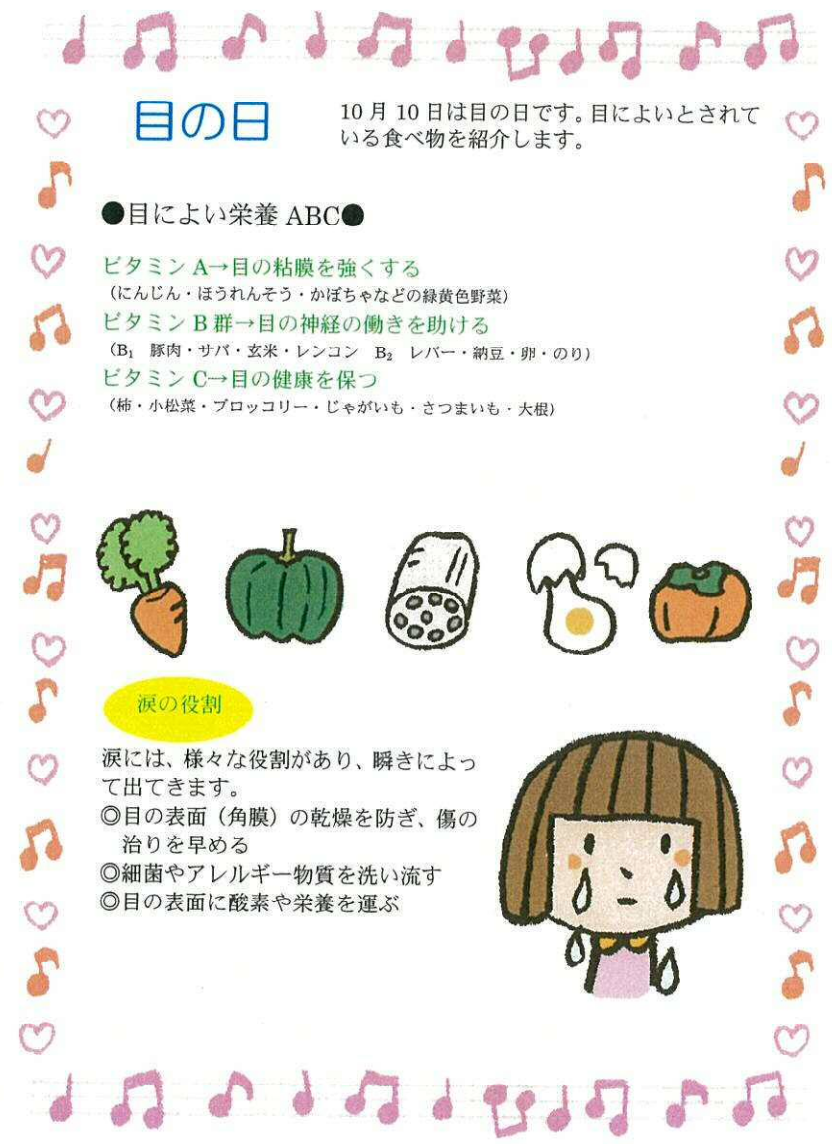 目の日
10月10日は目の日です。目によいとされて
いる食べ物を紹介します。
●目によい栄養 ABC●
ビタミン A→目の粘膜を強くする
（にんじん・ほうれんそう・かぼちゃなどの緑黄色野菜）
ビタミン B 群→目の神経の働きを助ける
（B₁　豚肉・サバ・玄米・レンコン　B₂　レバー・納豆・卵・のり）
ビタミン C→目の健康を保つ
（柿・小松菜・ブロッコリー・じゃがいも・さつまいも・大根）
涙の役割
涙には、様々な役割があり、瞬きによっ
て出てきます。
◎目の表面（角膜）の乾燥を防ぎ、傷の
治りを早める
◎細菌やアレルギー物質を洗い流す
◎目の表面に酸素や栄養を運ぶ